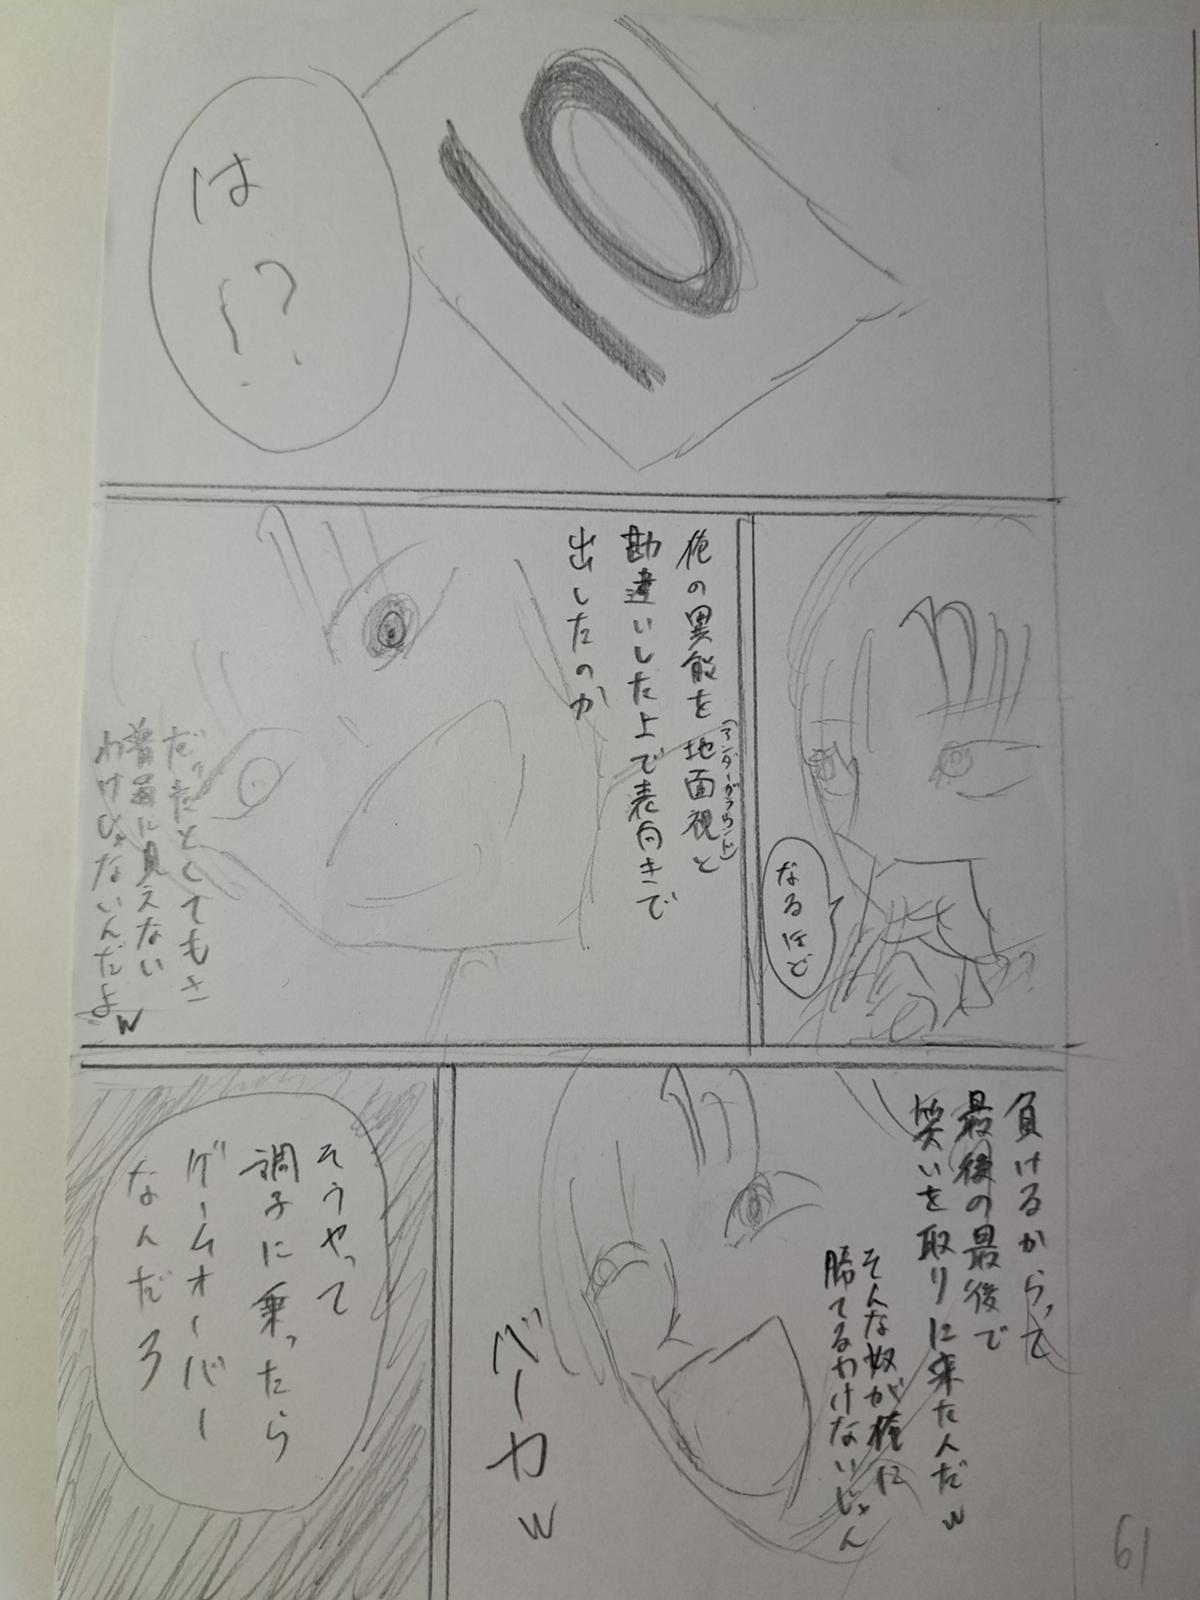 10
は
!?
なるほど
俺の異能を地面視と
(アンダーグラウンド)
勘違いした上で表向きで
出したのか
だったとしてもさ
普通に見えない
わけじゃないんだよw
負けるからって
最後の最後で
笑いを取りに来たんだw
そんな奴が俺に
勝てるわけないじゃん
べーカw
そうやって
調子に乗ったら
ゲームオーバー
なんだろ
61